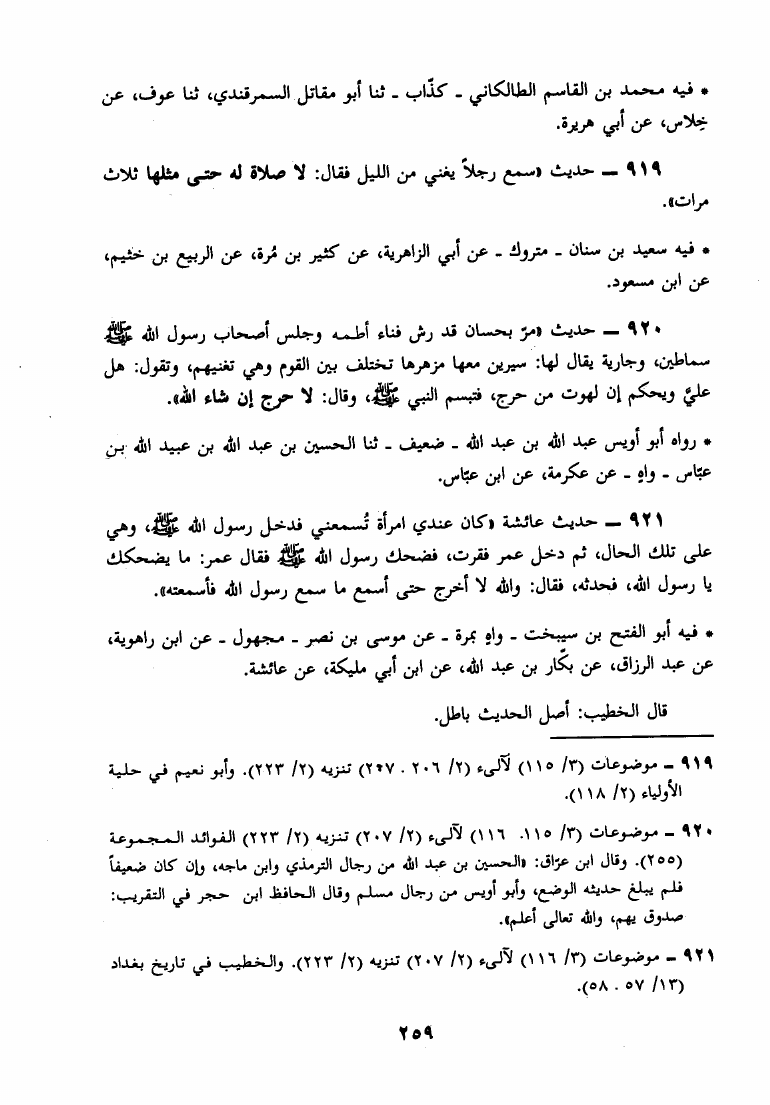 * فيه محمد بن القاسم الطالكاني ـ كذّاب ـ ثنا أبو مقاتل السمرقندي، ثنا عوف، عن
خِلاس، عن أبي هريرة.
٩١٩ ــ حديث «سمع رجلاً يغني من الليل فقال: لا صلاة له حتى مثلها ثلاث
مرات».
* فيه سعيد بن سنان ـ متروك ـ عن أبي الزاهرية، عن كثير بن مُرة، عن الربيع بن خثيم،
عن ابن مسعود.
٩٢٠ ــ حديث «مرّ بحسان قد رش فناء أطمه وجلس أصحاب رسول الله ﷺ
سماطين، وجارية يقال لها: سيرين معها مزهرها تختلف بين القوم وهي تغنيهم، وتقول: هل
عليّ ويحكم إن لهوت من حرج، فتبسم النبي ﷺ، وقال: لا حرج إن شاء الله».
* رواه أبو أويس عبد الله بن عبد الله ـ ضعيف ـ ثنا الحسين بن عبد الله بن عبيد الله بن
عبّاس ـ واهٍ ـ عن عكرمة، عن ابن عبّاس.
٩٢١ ــ حديث عائشة «كان عندي امرأة تُسمعني فدخل رسول الله ﷺ، وهي
على تلك الحال، ثم دخل عمر فقرت، فضحك رسول الله ﷺ فقال عمر: ما يضحكك
يا رسول الله، فحدثه، فقال: والله لا أخرج حتى أسمع ما سمع رسول الله فأسمعته».
* فيه أبو الفتح بن سيبخت ـ واهٍ بمرة ـ عن موسى بن نصر ـ مجهول ـ عن ابن راهوية،
عن عبد الرزاق، عن بكّار بن عبد الله، عن ابن أبي مليكة، عن عائشة.
قال الخطيب: أصل الحديث باطل.
٩١٩ ـ موضوعات (٣/ ١١٥) لآلىء (٢/ ٢٠٦ . ٢٠٧) تنزيه (٢/ ٢٢٣). وأبو نعيم في حلية
الأولياء (٢/ ١١٨).
٩٢٠ ـ موضوعات (٣/ ١١٥. ١١٦) لآلىء (٢/ ٢٠٧) تنزيه (٢/ ٢٢٣) الفوائد المجموعة
(٢٥٥). وقال ابن عرّاق: «الحسين بن عبد الله من رجال الترمذي وابن ماجه، وإن كان ضعيفاً
فلم يبلغ حديثه الوضع، وأبو أويس من رجال مسلم وقال الحافظ ابن حجر في التقريب:
صدوق يهم، والله تعالى أعلم».
٩٢١ ـ موضوعات (٣/ ١١٦) لآلىء (٢/ ٢٠٧) تنزيه (٢/ ٢٢٣). والخطيب في تاريخ بغداد
(١٣/ ٥٧ . ٥٨).
٢٥٩